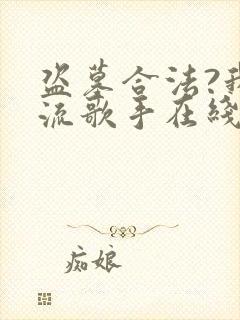 盗墓合法?我
流歌手在线
痴娘